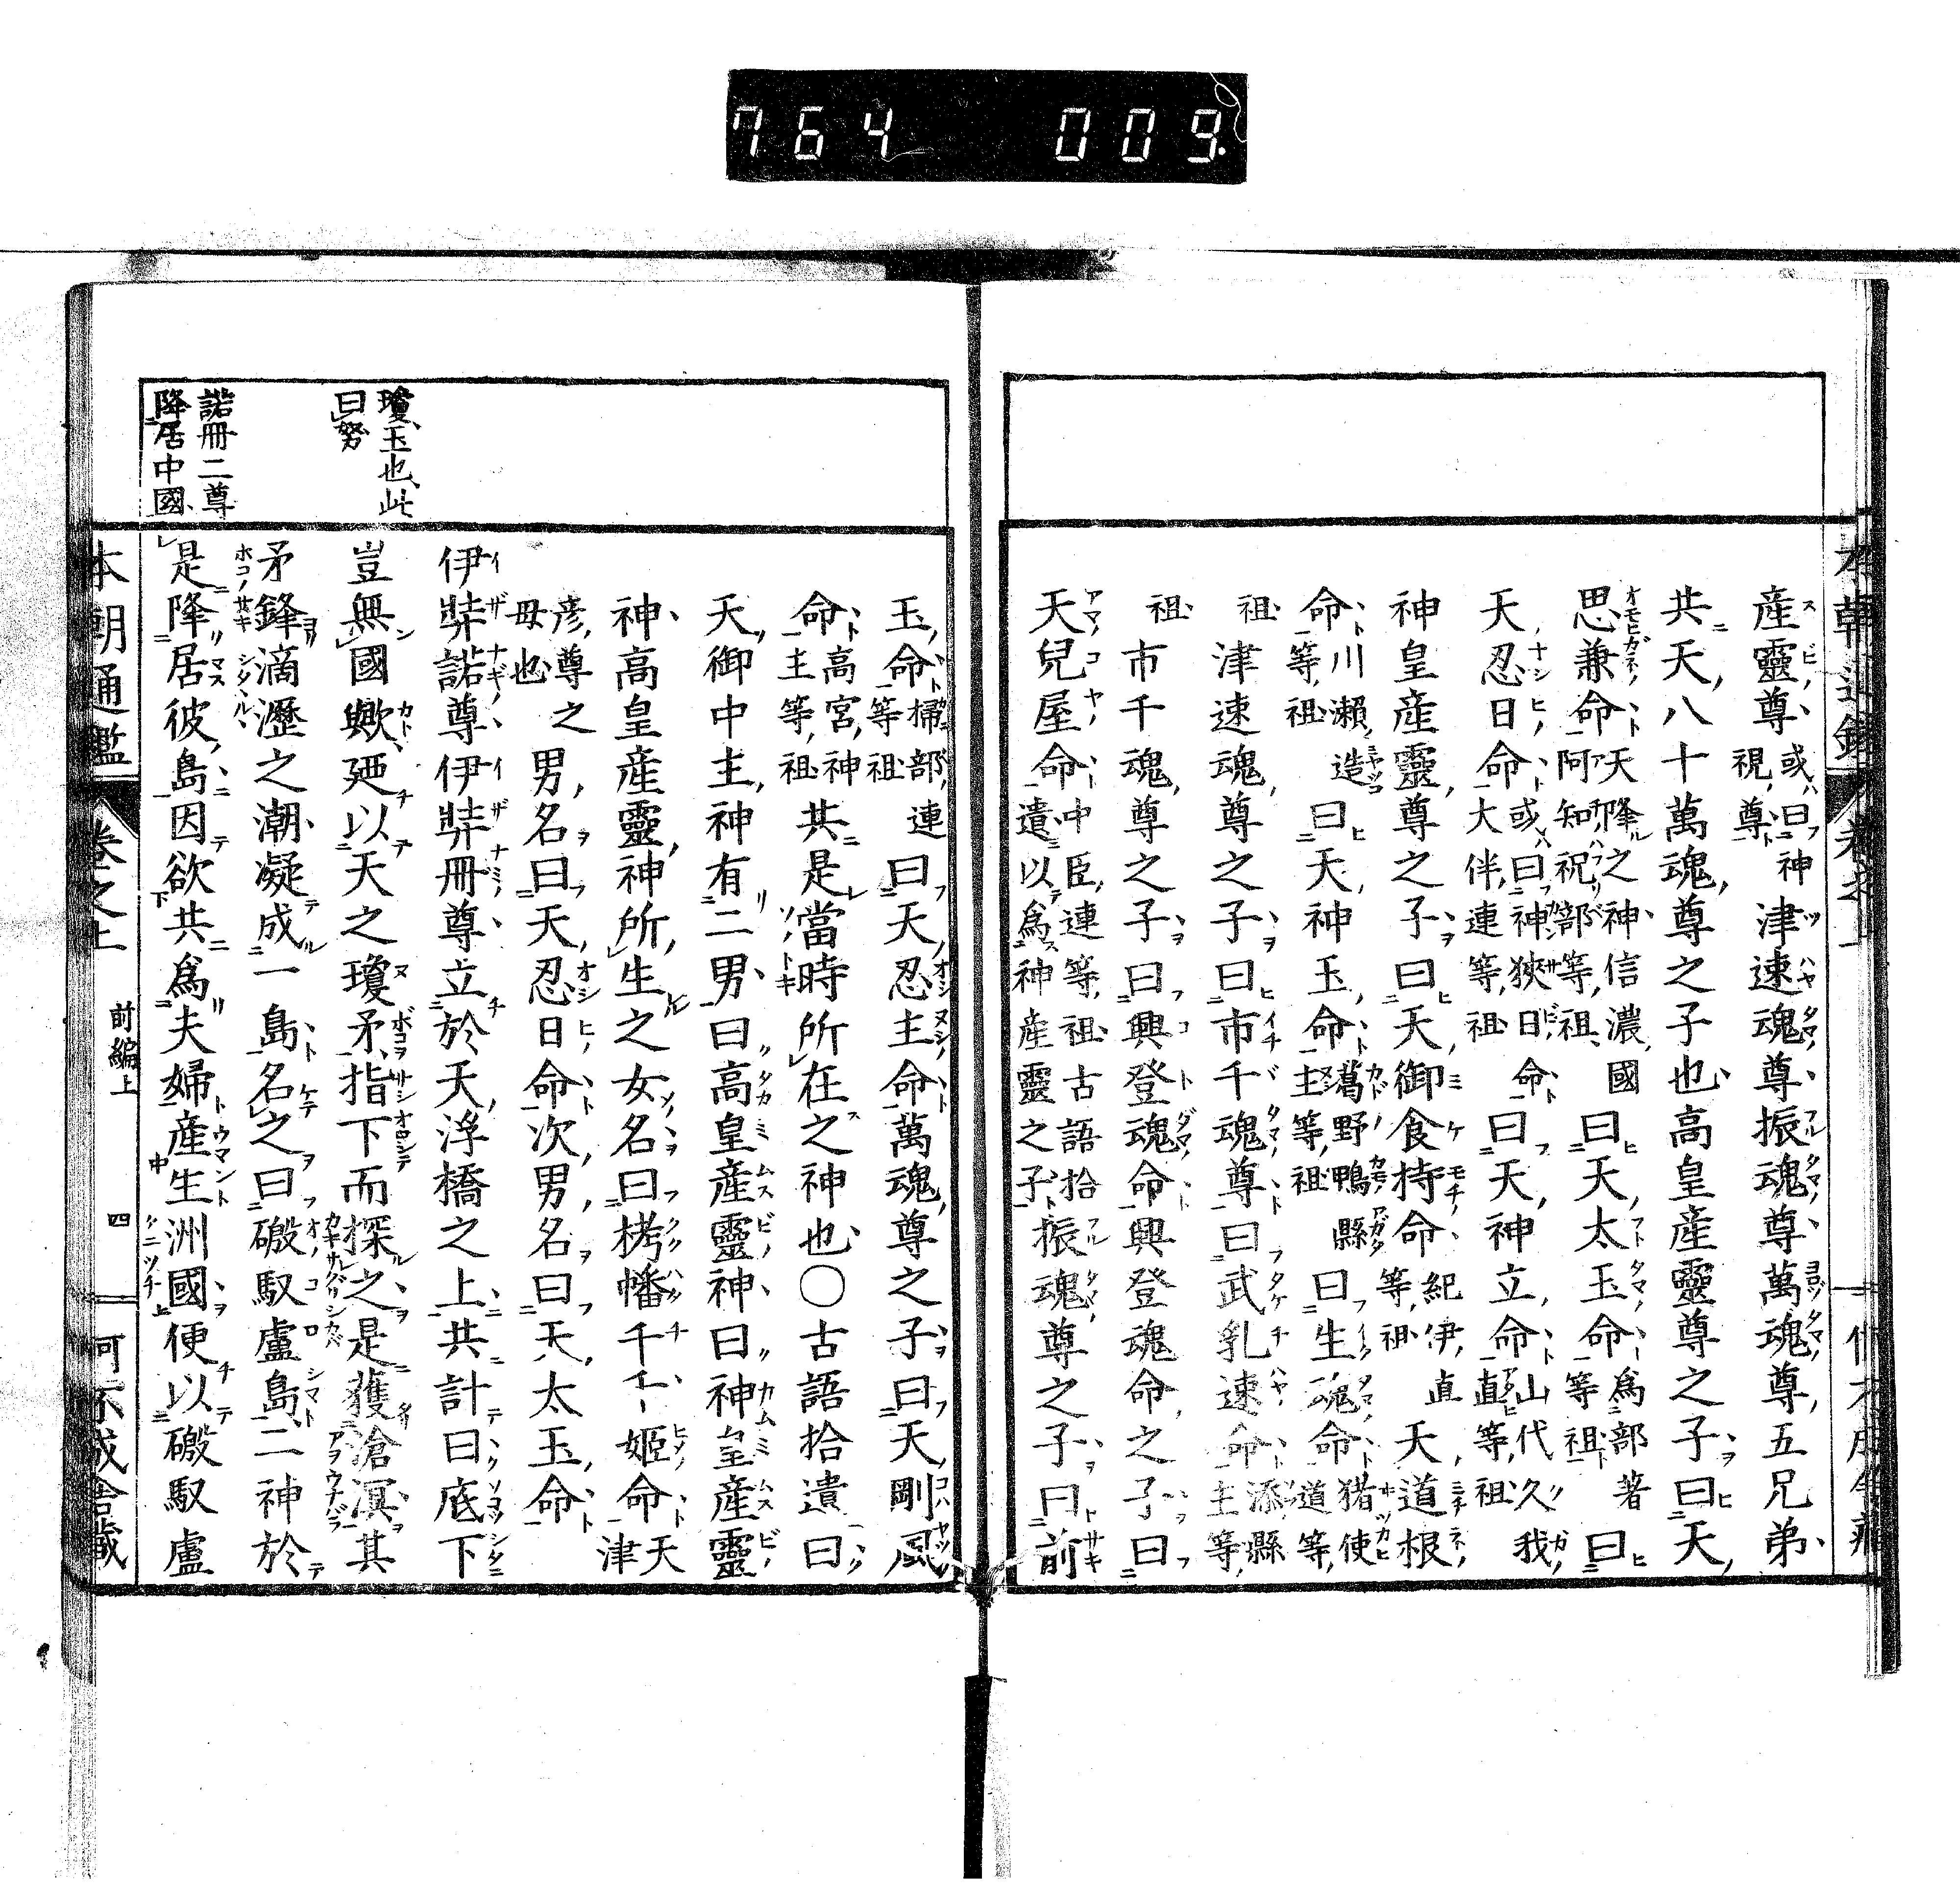 764 009
産靈尊或曰神視尊津速魂尊振魂尊萬魂尊五兄弟
共天八十萬魂尊之子也高皇産靈尊之子曰天
思兼命天降之神信濃國阿知祝部等祖曰天太玉命爲部著等祖曰
天忍日命或曰神狹日命大伴連等祖曰天神立命山代久我直等祖
神皇産靈尊之子曰天御食持命紀伊直等祖天道根
命川瀨造等祖曰天神玉命葛野鴨縣主等祖曰生魂命猪使道等
祖津速魂尊之子曰市千魂尊曰武乳速命添縣主等
祖市千魂尊之子曰興登魂命興登魂命之子曰
天兒屋命中臣連等祖古語拾遺以爲神産靈之子振魂尊之子曰前
玉命掃部連等祖曰天忍主命萬魂尊之子曰天剛風
命高宮神主等祖共是當時所在之神也〇古語拾遺曰
天御中主神有二男曰高皇産靈神曰神皇産靈
神高皇産靈神所生之女名曰栲幡千千姬命天津
彦尊之母也男名曰天忍日命次男名曰天太玉命
伊弉諾尊伊弉冊尊立於天浮橋之上共計曰底下
豈無國歟廼以天之瓊矛指下而探之是獲滄溟其
矛鋒滴瀝之潮凝成一島名之曰磤馭盧島二神於
是降居彼島因欲共爲夫婦産生洲國便以磤馭盧
瓊玉也此
曰努
諾冊二尊
降居中國
本朝通鑑 卷之上 前編上 四